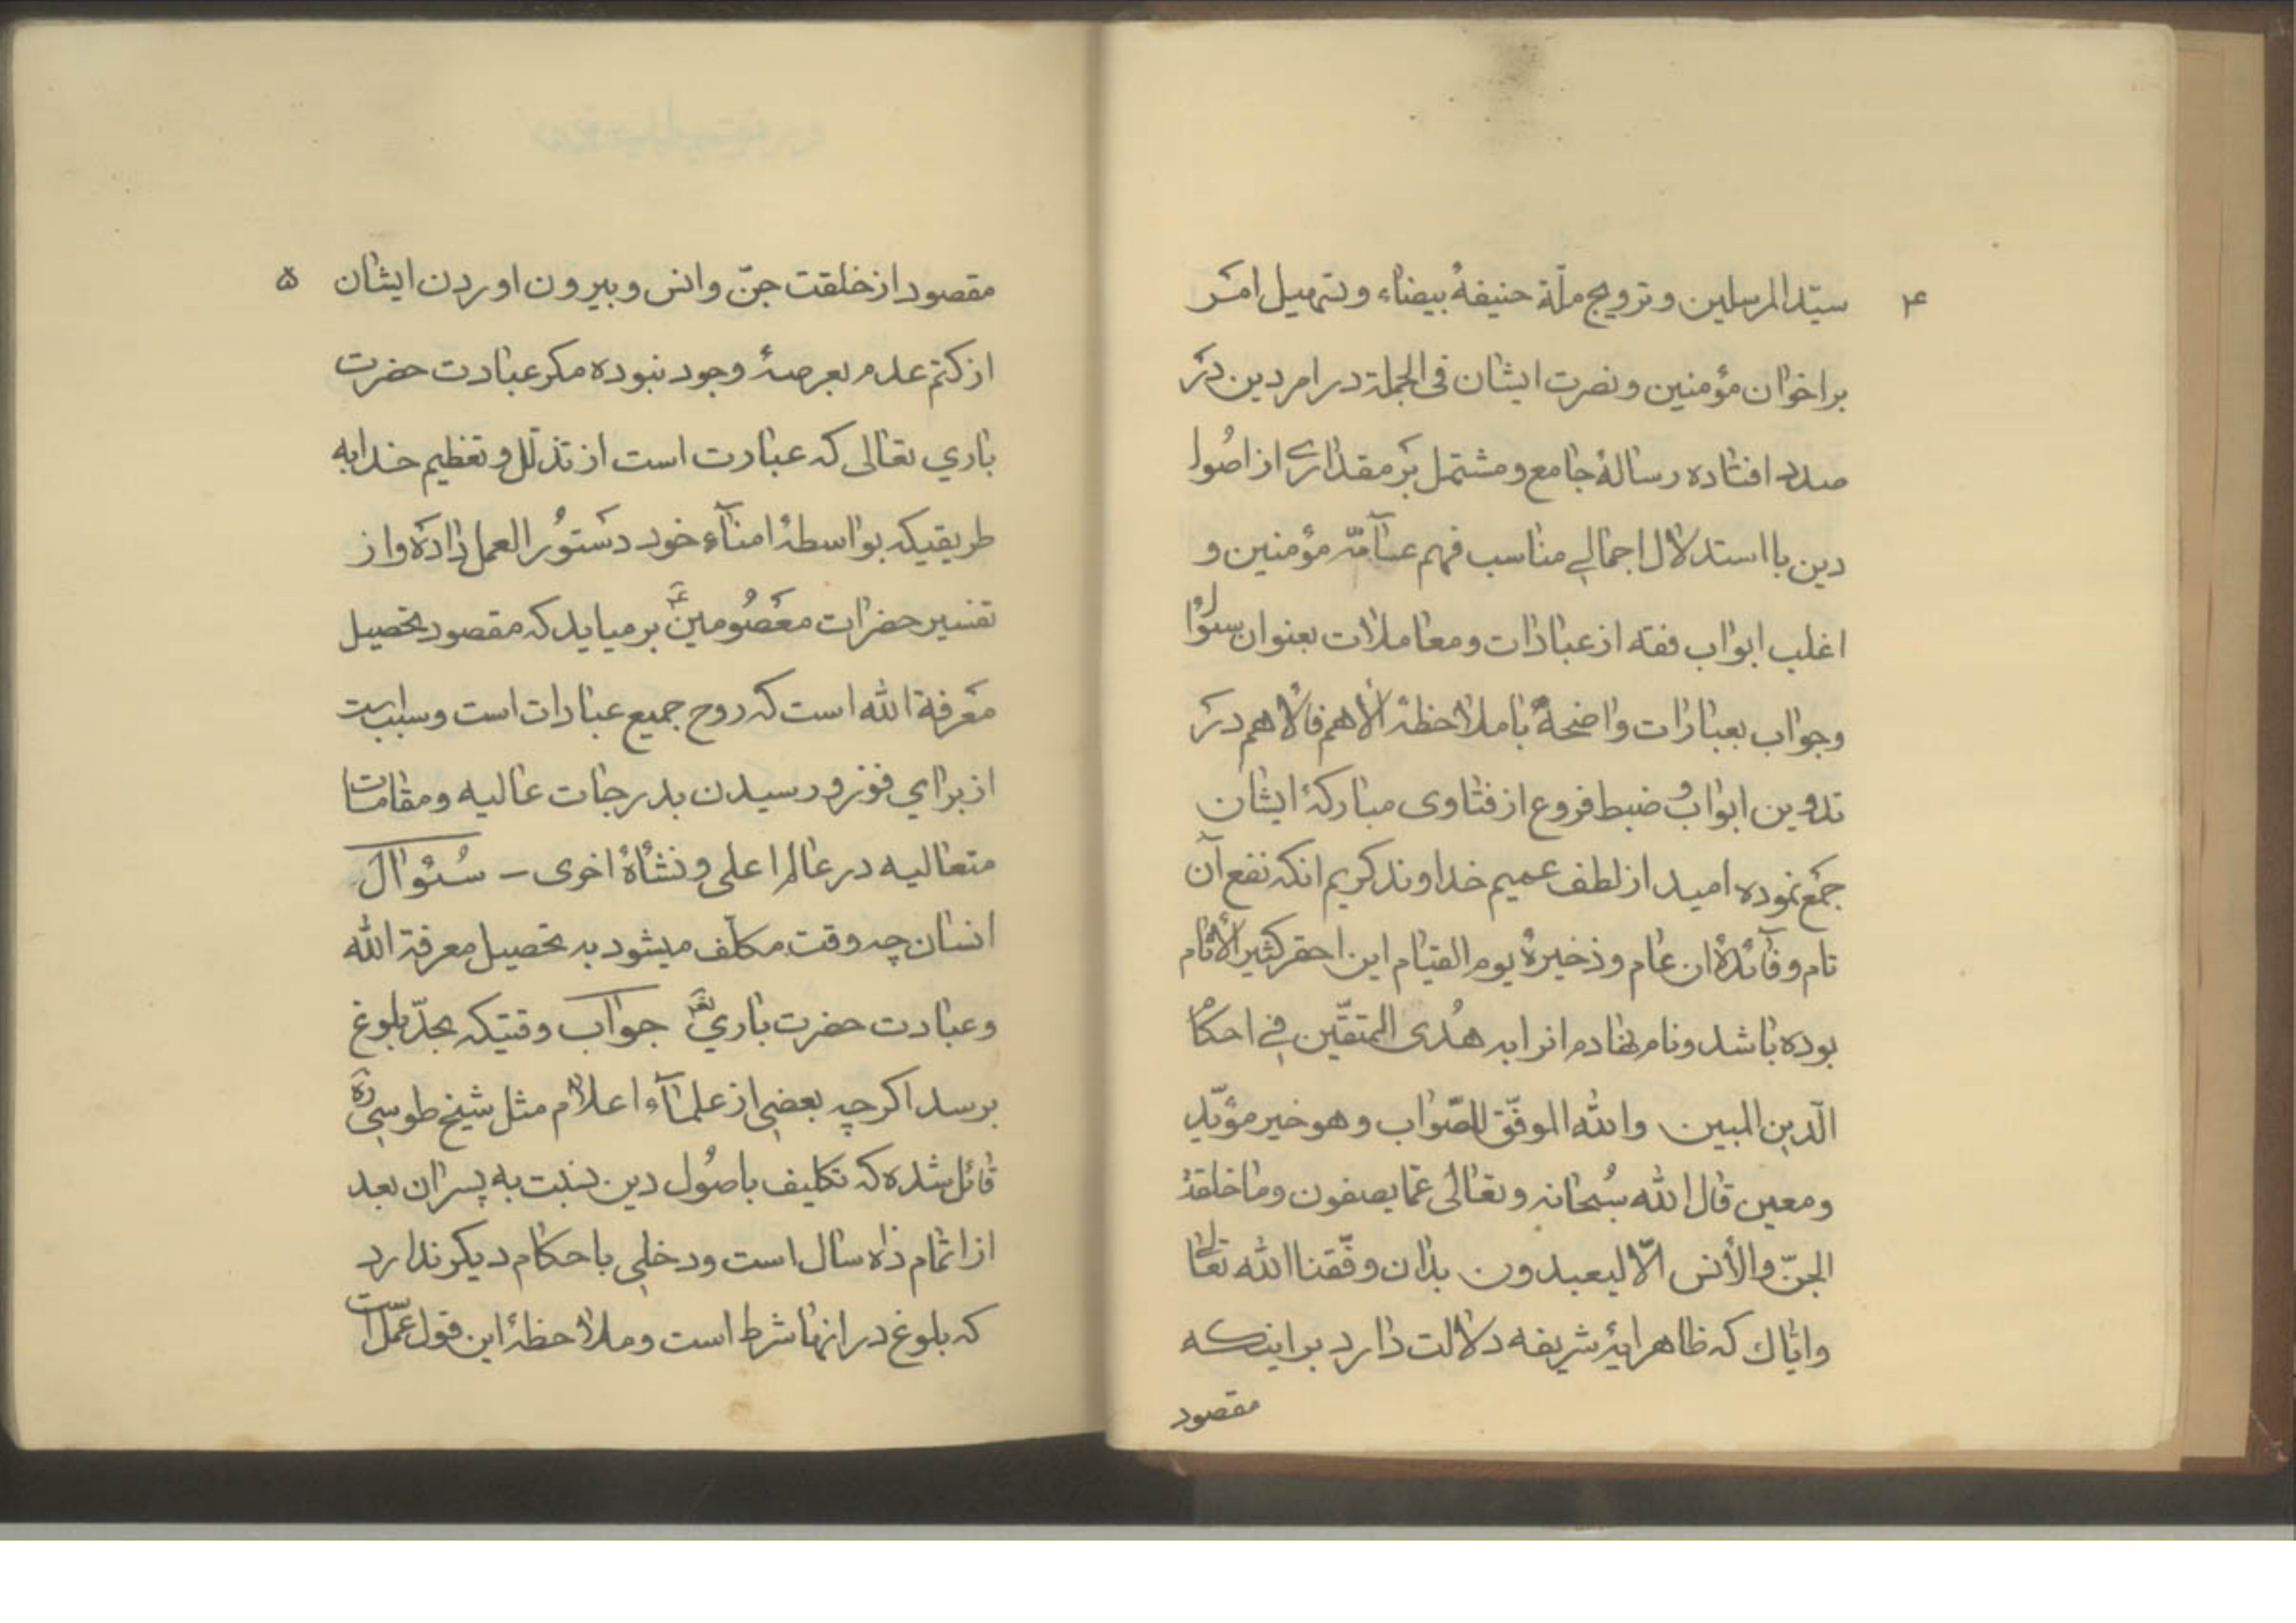 ۴
سیّد المرسلین و ترویج ملّة حنیفهٔ بیضاء و تسهیل امر
بر اخوان مؤمنین و نصرت ایشان فی الجملة در امر دین در
صدد افتاده رسالهٔ جامع و مشتمل بر مقداری از اصُول
دین با استدلال اجمالی مناسب فهم عآمّه مؤمنین و
اغلب ابواب فقه از عبادات و معاملات بعنوان سئوال
و جواب بعبارات واضحهٔ با ملاحظهٔ الأهم فالأهم در
تدوین ابواب و ضبط فروع از فتاوی مبارکهٔ ایشان
جمع نموده امید از لطف عمیم خداوند کریم انکه نفع آن
تام و فآئدهٔ ان عام و ذخیرهٔ یوم القیام این احقر کثیر الأثام
بوده باشد و نام نهادم انرا به هُدی المتقّین فی احکام
الّدین المبین والله الموفّق للصّواب و هو خیر مؤیّد
و معین قال الله سُبحانه و تعالی عمّا یصفون و ما خلقتُ
الجنّ والأنس الّا لیعبدون بدان وفّقنا الله تعالی
وایّاك که ظاهر ایهٔ شریفه دلالت دارد بر اینکه
مقصود
۵
مقصود از خلقت جنّ و انس و بیرون اوردن ایشان
از کتم عدم بعرصهٔ وجود نبوده مکر عبادت حضرت
باري تعالی که عبارت است از تذلّل و تعظیم خدا به
طریقیکه بواسطهٔ امنآء خود دستورُ العمل داده و از
تفسیر حضرات معصُومینؑ برمیاید که مقصود تحصیل
معرفة الله است که روح جمیع عبادات است و سبب است
از براي فوز و رسیدن بدرجات عالیه و مقامات
متعالیه در عالم اعلی و نشأهٔ اخری – سُئوال
انسان چه وقت مکلّف میشود به تحصیل معرفة الله
و عبادت حضرت باري تعٓ جواب وقتیکه بحدّ بلوغ
برسد اکرچه بعضی از علمآء اعلام مثل شیخ طوسی ره
قائل شده که تکلیف باصُول دین نسبت به پسران بعد
از اتمام ده سال است و دخلی باحکام دیکر ندارد
که بلوغ در انها شرط است و ملاحظهٔ این قول